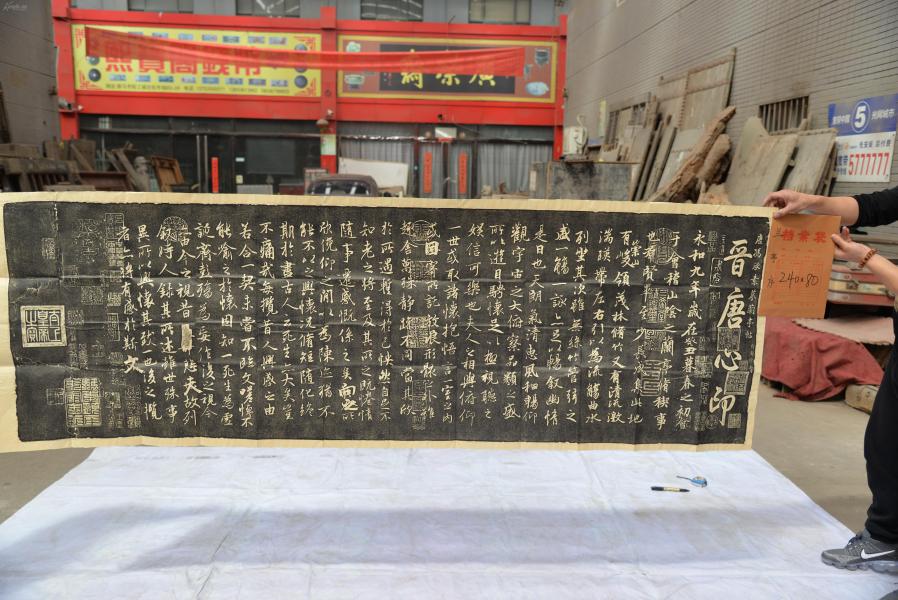 廣榮齋
5
5777777
檔案袋
蘭亭序
240×80
晉唐心印
永和九年歲在癸丑暮春之初會
于會稽山陰之蘭亭脩稧事
也羣賢畢至少長咸集此地
有崇山峻領茂林脩竹又有清流激
湍暎帶左右引以為流觴曲水
列坐其次雖無絲竹管弦之
盛一觴一詠亦足以暢敘幽情
是日也天朗氣清惠風和暢仰
觀宇宙之大俯察品類之盛
所以遊目騁懷足以極視聽之
娛信可樂也夫人之相與俯仰
一世或取諸懷抱悟言一室之內
或因寄所託放浪形骸之外雖
趣舍萬殊靜躁不同當其欣
於所遇蹔得於己怏然自足不
知老之將至及其所之既惓情
隨事遷感慨係之矣向之所
欣俛仰之閒以為陳迹猶不
能不以之興懷況脩短隨化終
期於盡古人云死生亦大矣豈
不痛哉每攬昔人興感之由
若合一契未嘗不臨文嗟悼不
能喻之於懷固知一死生為虛
誕齊彭殤為妄作後之視今
亦由今之視昔悲夫故列
敘時人錄其所述雖世殊事
異所以興懷其致一也後之攬
者亦將有感於斯文